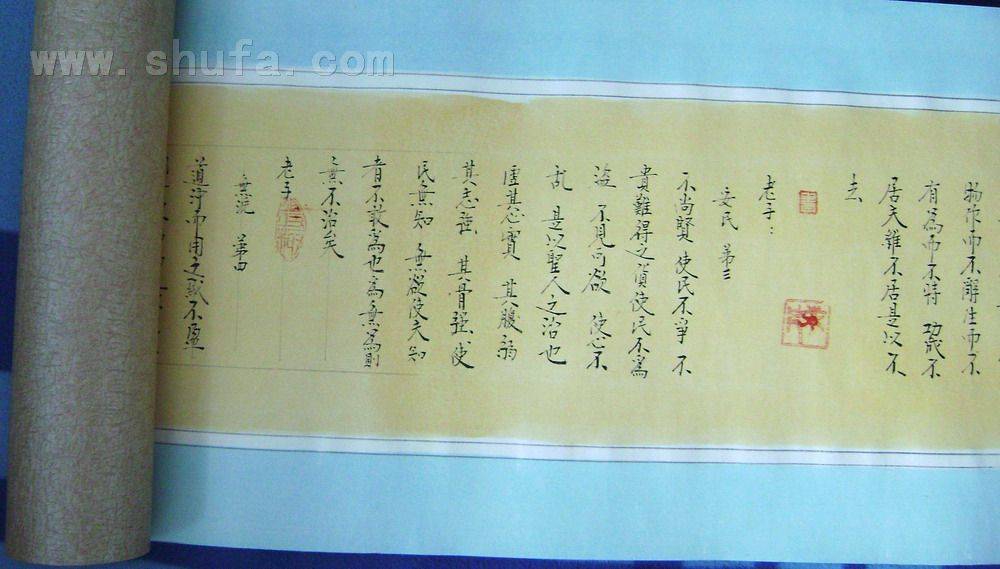 www.shufa.com
物作而不辭生而不
有為而不恃 功成不
居夫雖不居是以不
去
老子：
安民 第三
不尚賢 使民不爭 不
貴難得之貨使民不為
盜 不見可欲 使心不
乱 是以聖人之治也
虛其心實 其腹弱
其志強 其骨強使
民無知 無欲使夫知
者不敢為也為無為則
無不治矣
老子
無源 第四
道沖而用之或不盈